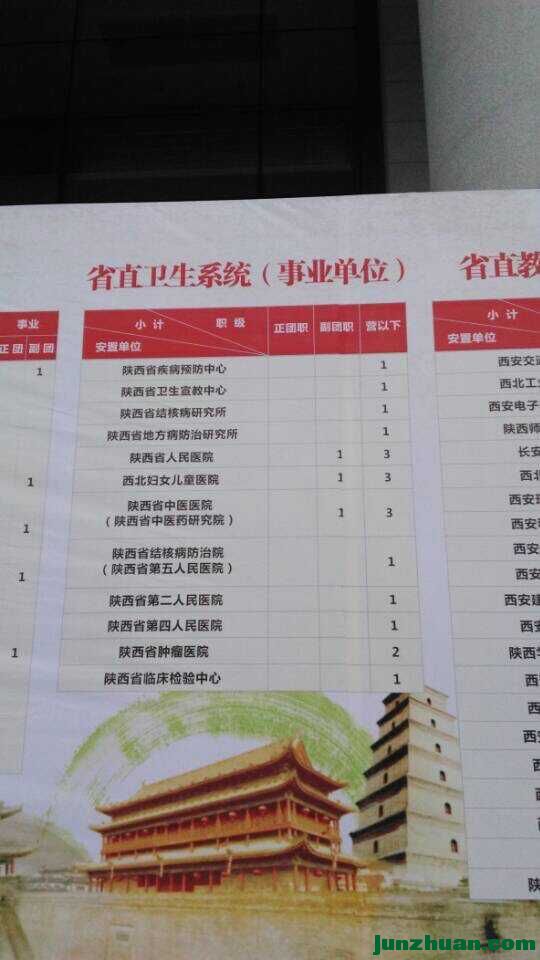 省直卫生系统（事业单位）
小计 职级 正团职 副团职 营以下
安置单位
陕西省疾病预防中心 1
陕西省卫生宣教中心 1
陕西省结核病研究所 1
陕西省地方病防治研究所 1
陕西省人民医院 1 3
西北妇女儿童医院 1 3
陕西省中医医院
（陕西省中医药研究院） 1 3
陕西省结核病防治院
（陕西省第五人民医院） 1
陕西省第二人民医院 1
陕西省第四人民医院 1
陕西省肿瘤医院 2
陕西省临床检验中心 1
事业
正团 副团
1
1
1
1
1
省直教
小计
安置单位
西安交通
西北工业
西安电子
陕西师
长安
西北
西安
西安
西安
西安
西安建
西安
陕西
西
西
西安
西
陕
junzhuan.com